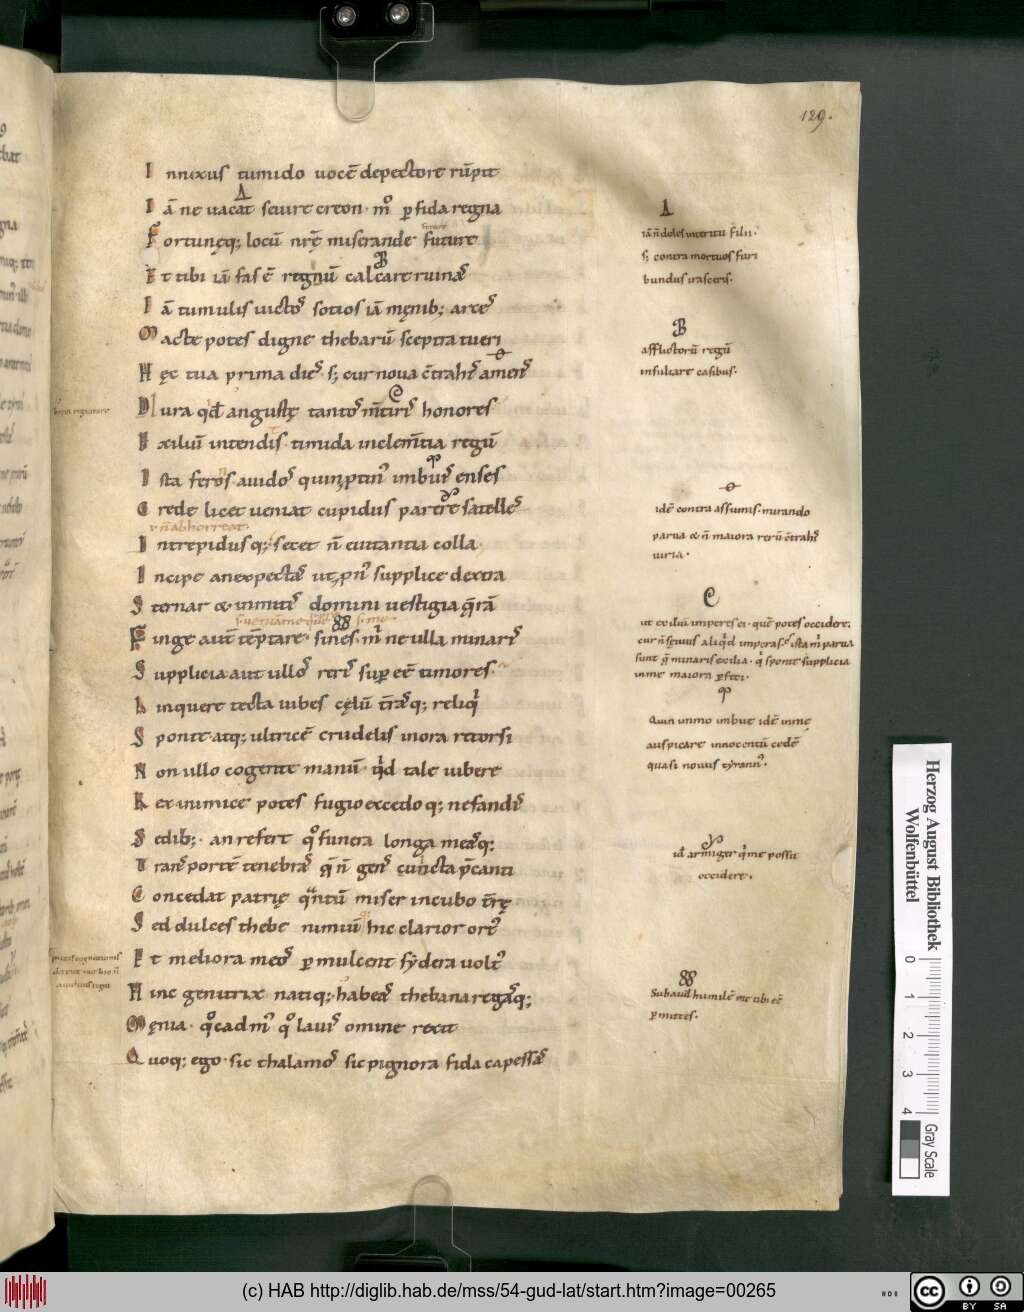 129.
I nnixus tumido uocē depectore rūpit
I ā ne uacat seuire creon· mͦ ꝑfida regna
F ortunęq; locū nrē miserande future
E t tibi iā fas ē regnū calcare ruinaˢ
I ā tumulis uictoˢ sotios iā męnib; arceˢ
M acte potes digne thebarū sceptra tueri
H ęc tua prima dieˢ s; cur noua c̄trahiˢ amenˢ
I ura qd angustę tantoˢ metiriˢ honores
E xiliū intendis· timida inclem̄tia regū
I sta feros auidoˢ quin ptin' imbuiˢ enses
C rede licet ueniat cupidus parere satelleˢ
v n̄ abhorreat·
I ntrepidusq; secet n̄ euitantia colla
I ncipe an expectaˢ ut pn' supplice dextra
S ternar & inmitiˢ domini uestigia q̄rā
F inge autē tēptare· sines· m' ne ulla minariˢ
S upplicia aut ulloˢ reriˢ suꝑ eē timores·
L inquere tecta iubes cęlū t̄raˢq; reliqi
S ponte atq; ultricē crudelis in ora retorsi
N on ullo cogente manū· qd tale iubere
R ex inimice potes fugio excedoq; nefandiˢ
S edib;· an refert qͦ funera longa meaˢq;
T rāsporte tenebraˢ q̄ n̄ genˢ cuncta p̄canti
C oncedat patrię qntū miser incubo t̄rę
S ed dulces thebe nimiū hic clarior ort'
E t meliora meoˢ ꝑmulcent sydera uolt'
H inc genitrix natiq; habeaˢ thebana regaˢq;
M ęnia· qͦ cadm' qͦ lai' omine rexit
Q uoq; ego· sic thalamoˢ sic pignora fida capessaˢ
A
iā n̄ doles interitu filii·
s; contra mortuos furi
bundus irasceris·
B
afflictorū regū
insultare casibus·
idē contra assumis· mirando
parua & n̄ maiora rerū c̄trahiˢ
iuria·
C
ut exiliū imperes ei· quē potes occidere·
sunt q̄ minaris exilia· q' sponte supplicia
inme maiora ꝑfeci·
Quin immo imbue idē inme
auspicare innocentū cedē
quasi nouus tyrann'·
id armiger q' me possit
occidere·
Subaud humilē me tibi eē
ꝑmittes·
Herzog August Bibliothek
Wolfenbüttel
0 1 2 3 4
Gray Scale
(c) HAB http://diglib.hab.de/mss/54-gud-lat/start.htm?image=00265
cc BY SA